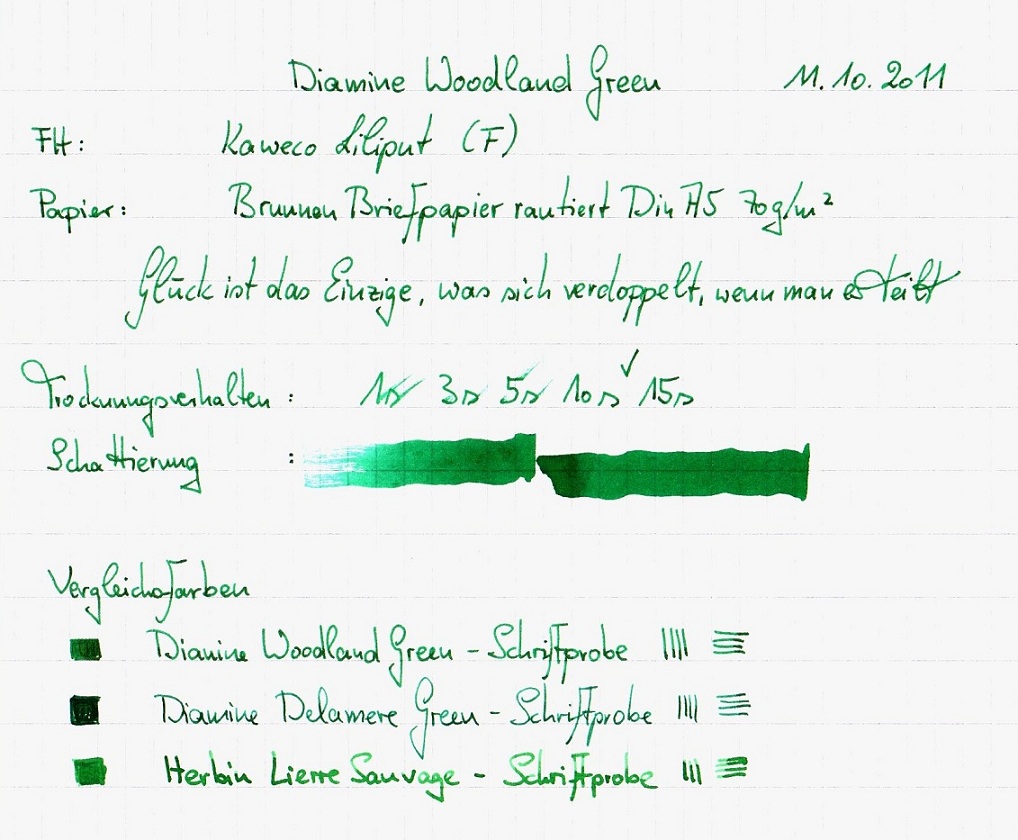 Diamine Woodland Green 11.10.2011
FH: Kaweco Liliput (F)
Papier: Brunnen Briefpapier rautiert Din A5 70g/m²
Glück ist das Einzige, was sich verdoppelt, wenn man es teilt
Trocknungsverhalten : 1s 3s 5s 10s 15s
Schattierung :
Vergleichsfarben
Diamine Woodland Green - Schriftprobe
Diamine Delamere Green - Schriftprobe
Herbin Lierre Sauvage - Schriftprobe